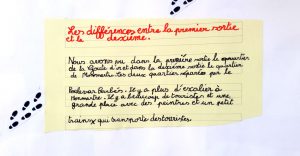 Les différences entre la premier sortie
et le deuxième.
Nous avons pu dans la première sortie le quartier
de la Goute d'or dans la deuxième sortie le quartier
de Monmartre. Les deux quartier séparées par le
Boulevar Barbès. Il y a plus d'escalier à
Monmartre. Il y a beaucoup de touristes et une
grande place avec des peintres et un petit
train qui transporte des touristes.